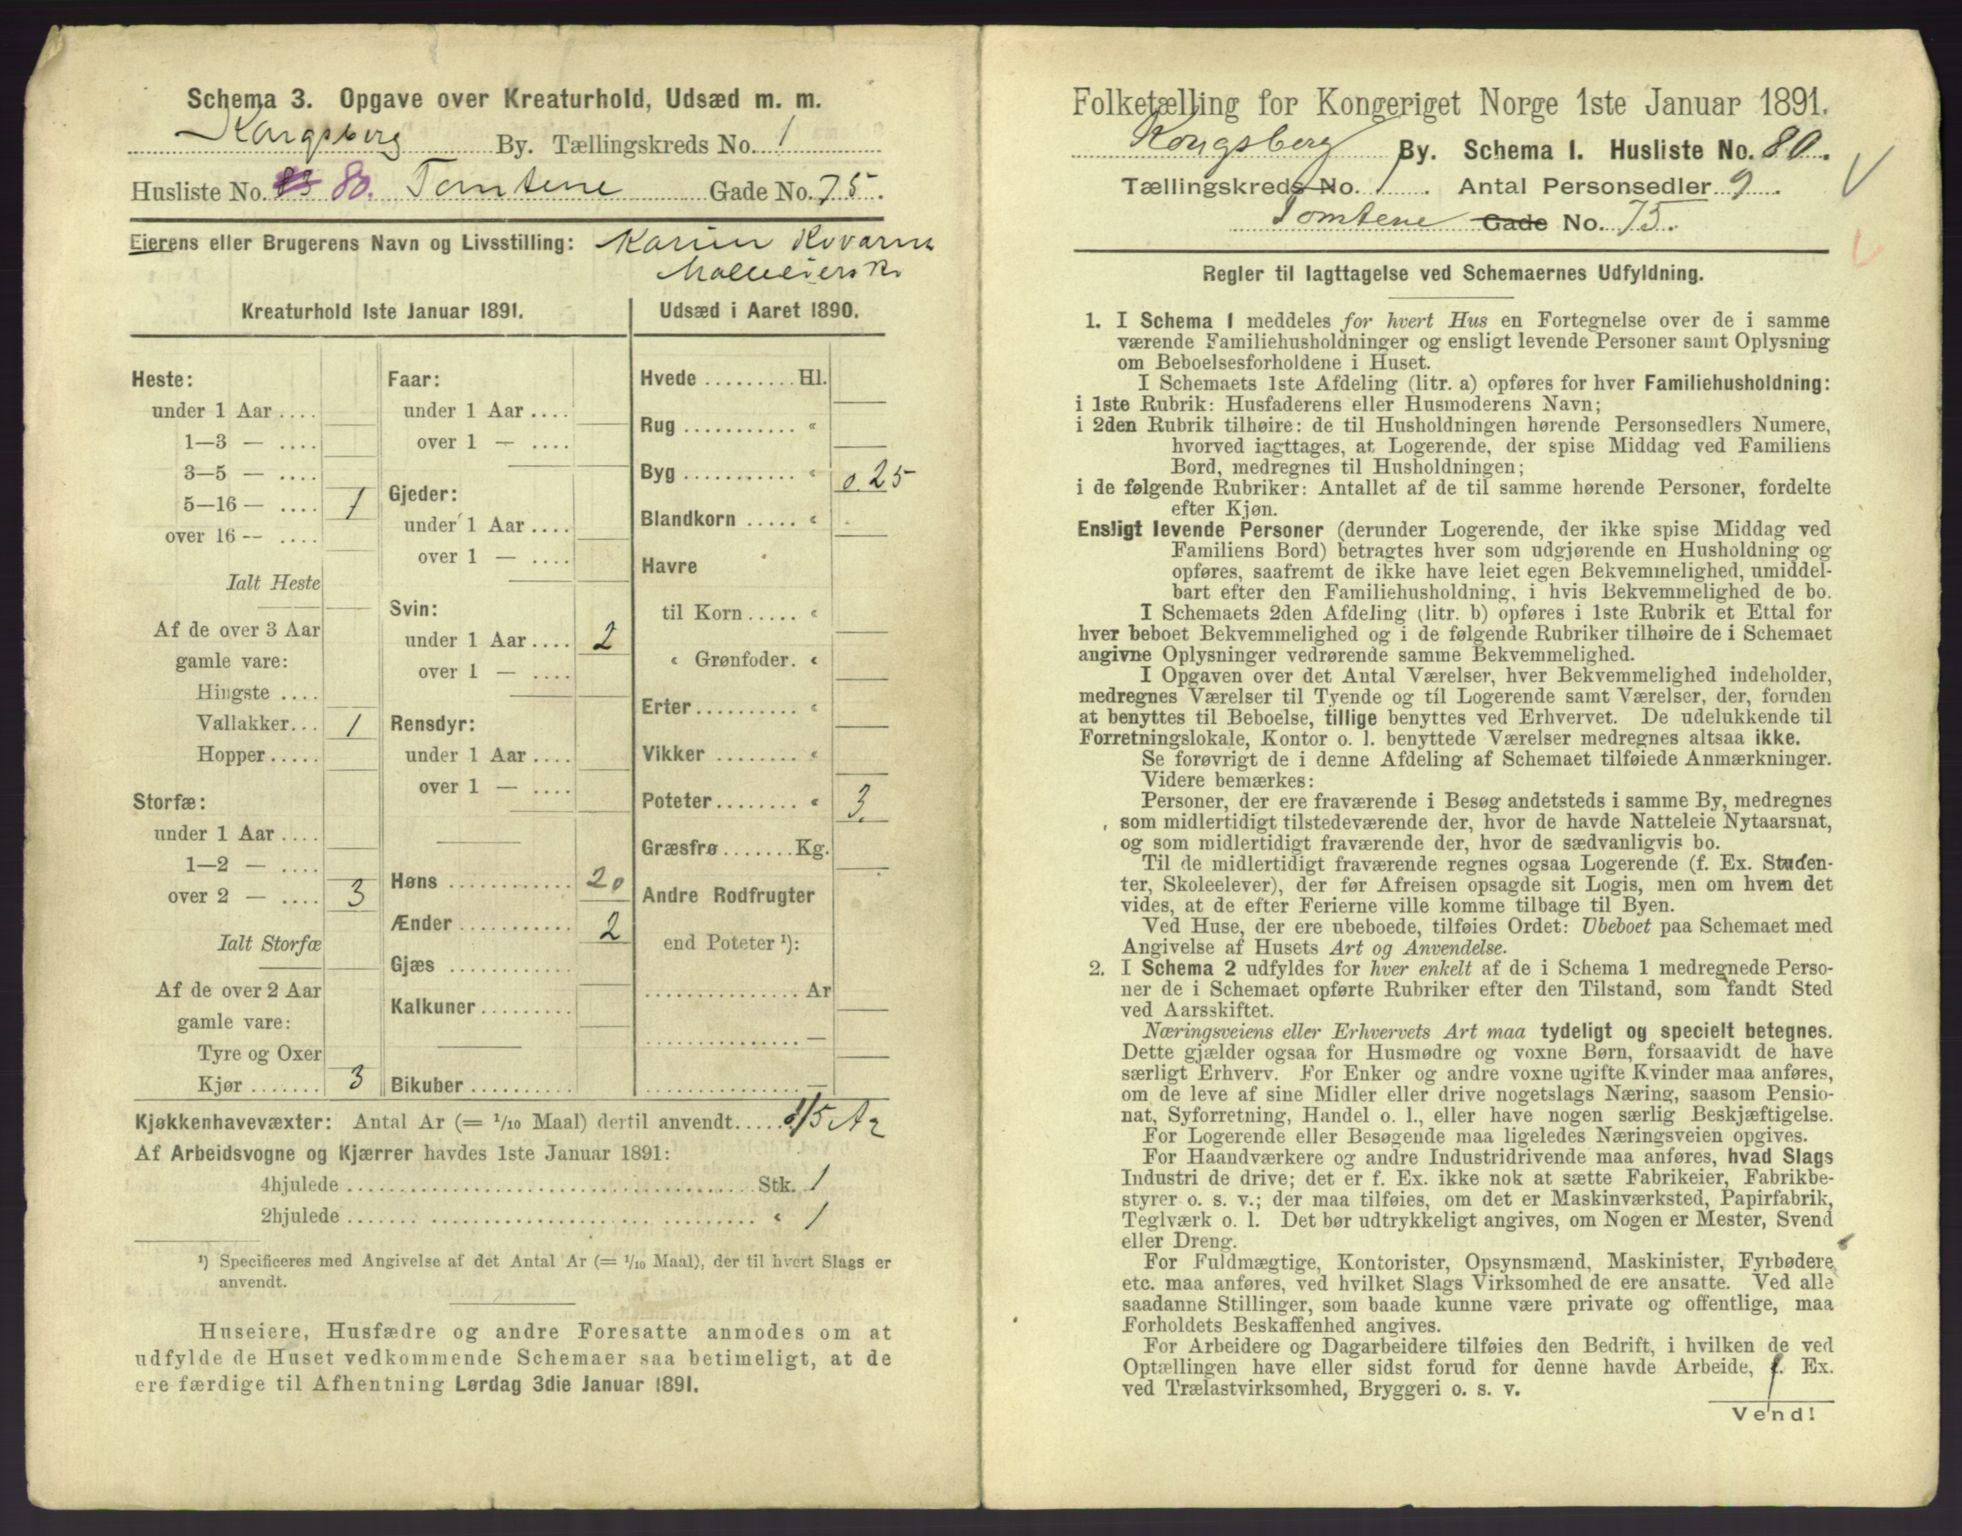 Schema 3. Opgave over Kreaturhold, Udsæd m. m.
Kongsberg By. Tællingskreds No. 1
Husliste No. 83 80. Tomtene Gade No. 75.
Eierens eller Brugerens Navn og Livsstilling: Karen
Kreaturhold 1ste Januar 1891.
Heste:
under 1 Aar ....
1—3 — ....
3—5 — ....
5—16 — .... 1
over 16 — ....
Ialt Heste
Af de over 3 Aar
gamle vare:
Hingste ....
Vallakker... 1
Hopper.....
Storfæ:
under 1 Aar ....
1—2 — ....
over 2 — .... 3
Ialt Storfæ
Af de over 2 Aar
gamle vare:
Tyre og Oxer
Kjør....... 3
Faar:
under 1 Aar ....
over 1 — ....
Gjeder:
under 1 Aar ....
over 1 — ....
Svin:
under 1 Aar .... 2
over 1 — ....
Rensdyr:
under 1 Aar ....
over 1 — ....
Høns ........... 20
Ænder ........... 2
Gjæs ...........
Kalkuner.........
Bikuber..........
Udsæd i Aaret 1890.
Hvede ......... Hl.
Rug ........... "
Byg ........... " 0.25
Blandkorn ..... "
Havre
til Korn..... "
" Grønfoder. "
Erter.......... "
Vikker ........ "
Poteter........ " 3.
Græsfrø....... Kg.
Andre Rodfrugter
end Poteter ¹):
............... Ar
............... —
............... —
Kjøkkenhavevæxter: Antal Ar (= 1/10 Maal) dertil anvendt..... 1/5 Ar
Af Arbeidsvogne og Kjærrer havdes 1ste Januar 1891:
4hjulede ........................................ Stk. 1
2hjulede ........................................ " 1
¹) Specificeres med Angivelse af det Antal Ar (= 1/10 Maal), der til hvert Slags er
anvendt.
Huseiere, Husfædre og andre Foresatte anmodes om at
udfylde de Huset vedkommende Schemaer saa betimeligt, at de
ere færdige til Afhentning Lørdag 3die Januar 1891.
Folketælling for Kongeriget Norge 1ste Januar 1891.
Kongsberg By. Schema 1. Husliste No. 80.
Tællingskreds No. 1. Antal Personsedler 9.
Tomtene Gade No. 75.
Regler til Iagttagelse ved Schemaernes Udfyldning.
1. I Schema 1 meddeles for hvert Hus en Fortegnelse over de i samme
værende Familiehusholdninger og ensligt levende Personer samt Oplysning
om Beboelsesforholdene i Huset.
I Schemaets 1ste Afdeling (litr. a) opføres for hver Familiehusholdning:
i 1ste Rubrik: Husfaderens eller Husmoderens Navn;
i 2den Rubrik tilhøire: de til Husholdningen hørende Personsedlers Numere,
hvorved iagttages, at Logerende, der spise Middag ved Familiens
Bord, medregnes til Husholdningen;
i de følgende Rubriker: Antallet af de til samme hørende Personer, fordelte
efter Kjøn.
Ensligt levende Personer (derunder Logerende, der ikke spise Middag ved
Familiens Bord) betragtes hver som udgjørende en Husholdning og
opføres, saafremt de ikke have leiet egen Bekvemmelighed, umiddel-
bart efter den Familiehusholdning, i hvis Bekvemmelighed de bo.
I Schemaets 2den Afdeling (litr. b) opføres i 1ste Rubrik et Ettal for
hver beboet Bekvemmelighed og i de følgende Rubriker tilhøire de i Schemaet
angivne Oplysninger vedrørende samme Bekvemmelighed.
I Opgaven over det Antal Værelser, hver Bekvemmelighed indeholder,
medregnes Værelser til Tyende og til Logerende samt Værelser, der, foruden
at benyttes til Beboelse, tillige benyttes ved Erhvervet. De udelukkende til
Forretningslokale, Kontor o. l. benyttede Værelser medregnes altsaa ikke.
Se forøvrigt de i denne Afdeling af Schemaet tilføiede Anmærkninger.
Videre bemærkes:
Personer, der ere fraværende i Besøg andetsteds i samme By, medregnes
som midlertidigt tilstedeværende der, hvor de havde Natteleie Nytaarsnat,
og som midlertidigt fraværende der, hvor de sædvanligvis bo.
Til de midlertidigt fraværende regnes ogsaa Logerende (f. Ex. Studen-
ter, Skoleelever), der før Afreisen opsagde sit Logis, men om hvem det
vides, at de efter Ferierne ville komme tilbage til Byen.
Ved Huse, der ere ubeboede, tilføies Ordet: Ubeboet paa Schemaet med
Angivelse af Husets Art og Anvendelse.
2. I Schema 2 udfyldes for hver enkelt af de i Schema 1 medregnede Perso-
ner de i Schemaet opførte Rubriker efter den Tilstand, som fandt Sted
ved Aarsskiftet.
Næringsveiens eller Erhvervets Art maa tydeligt og specielt betegnes.
Dette gjælder ogsaa for Husmødre og voxne Børn, forsaavidt de have
særligt Erhverv. For Enker og andre voxne ugifte Kvinder maa anføres,
om de leve af sine Midler eller drive nogetslags Næring, saasom Pensio-
nat, Syforretning, Handel o. l., eller have nogen særlig Beskjæftigelse.
For Logerende eller Besøgende maa ligeledes Næringsveien opgives.
For Haandværkere og andre Industridrivende maa anføres, hvad Slags
Industri de drive; det er f. Ex. ikke nok at sætte Fabrikeier, Fabrikbe-
styrer o. s. v.; der maa tilføies, om det er Maskinværksted, Papirfabrik,
Teglværk o. l. Det bør udtrykkeligt angives, om Nogen er Mester, Svend
eller Dreng.
For Fuldmægtige, Kontorister, Opsynsmænd, Maskinister, Fyrbødere
etc. maa anføres, ved hvilket Slags Virksomhed de ere ansatte. Ved alle
saadanne Stillinger, som baade kunne være private og offentlige, maa
Forholdets Beskaffenhed angives.
For Arbeidere og Dagarbeidere tilføies den Bedrift, i hvilken de ved
Optællingen have eller sidst forud for denne havde Arbeide, f. Ex.
ved Trælastvirksomhed, Bryggeri o. s. v.
Vend!